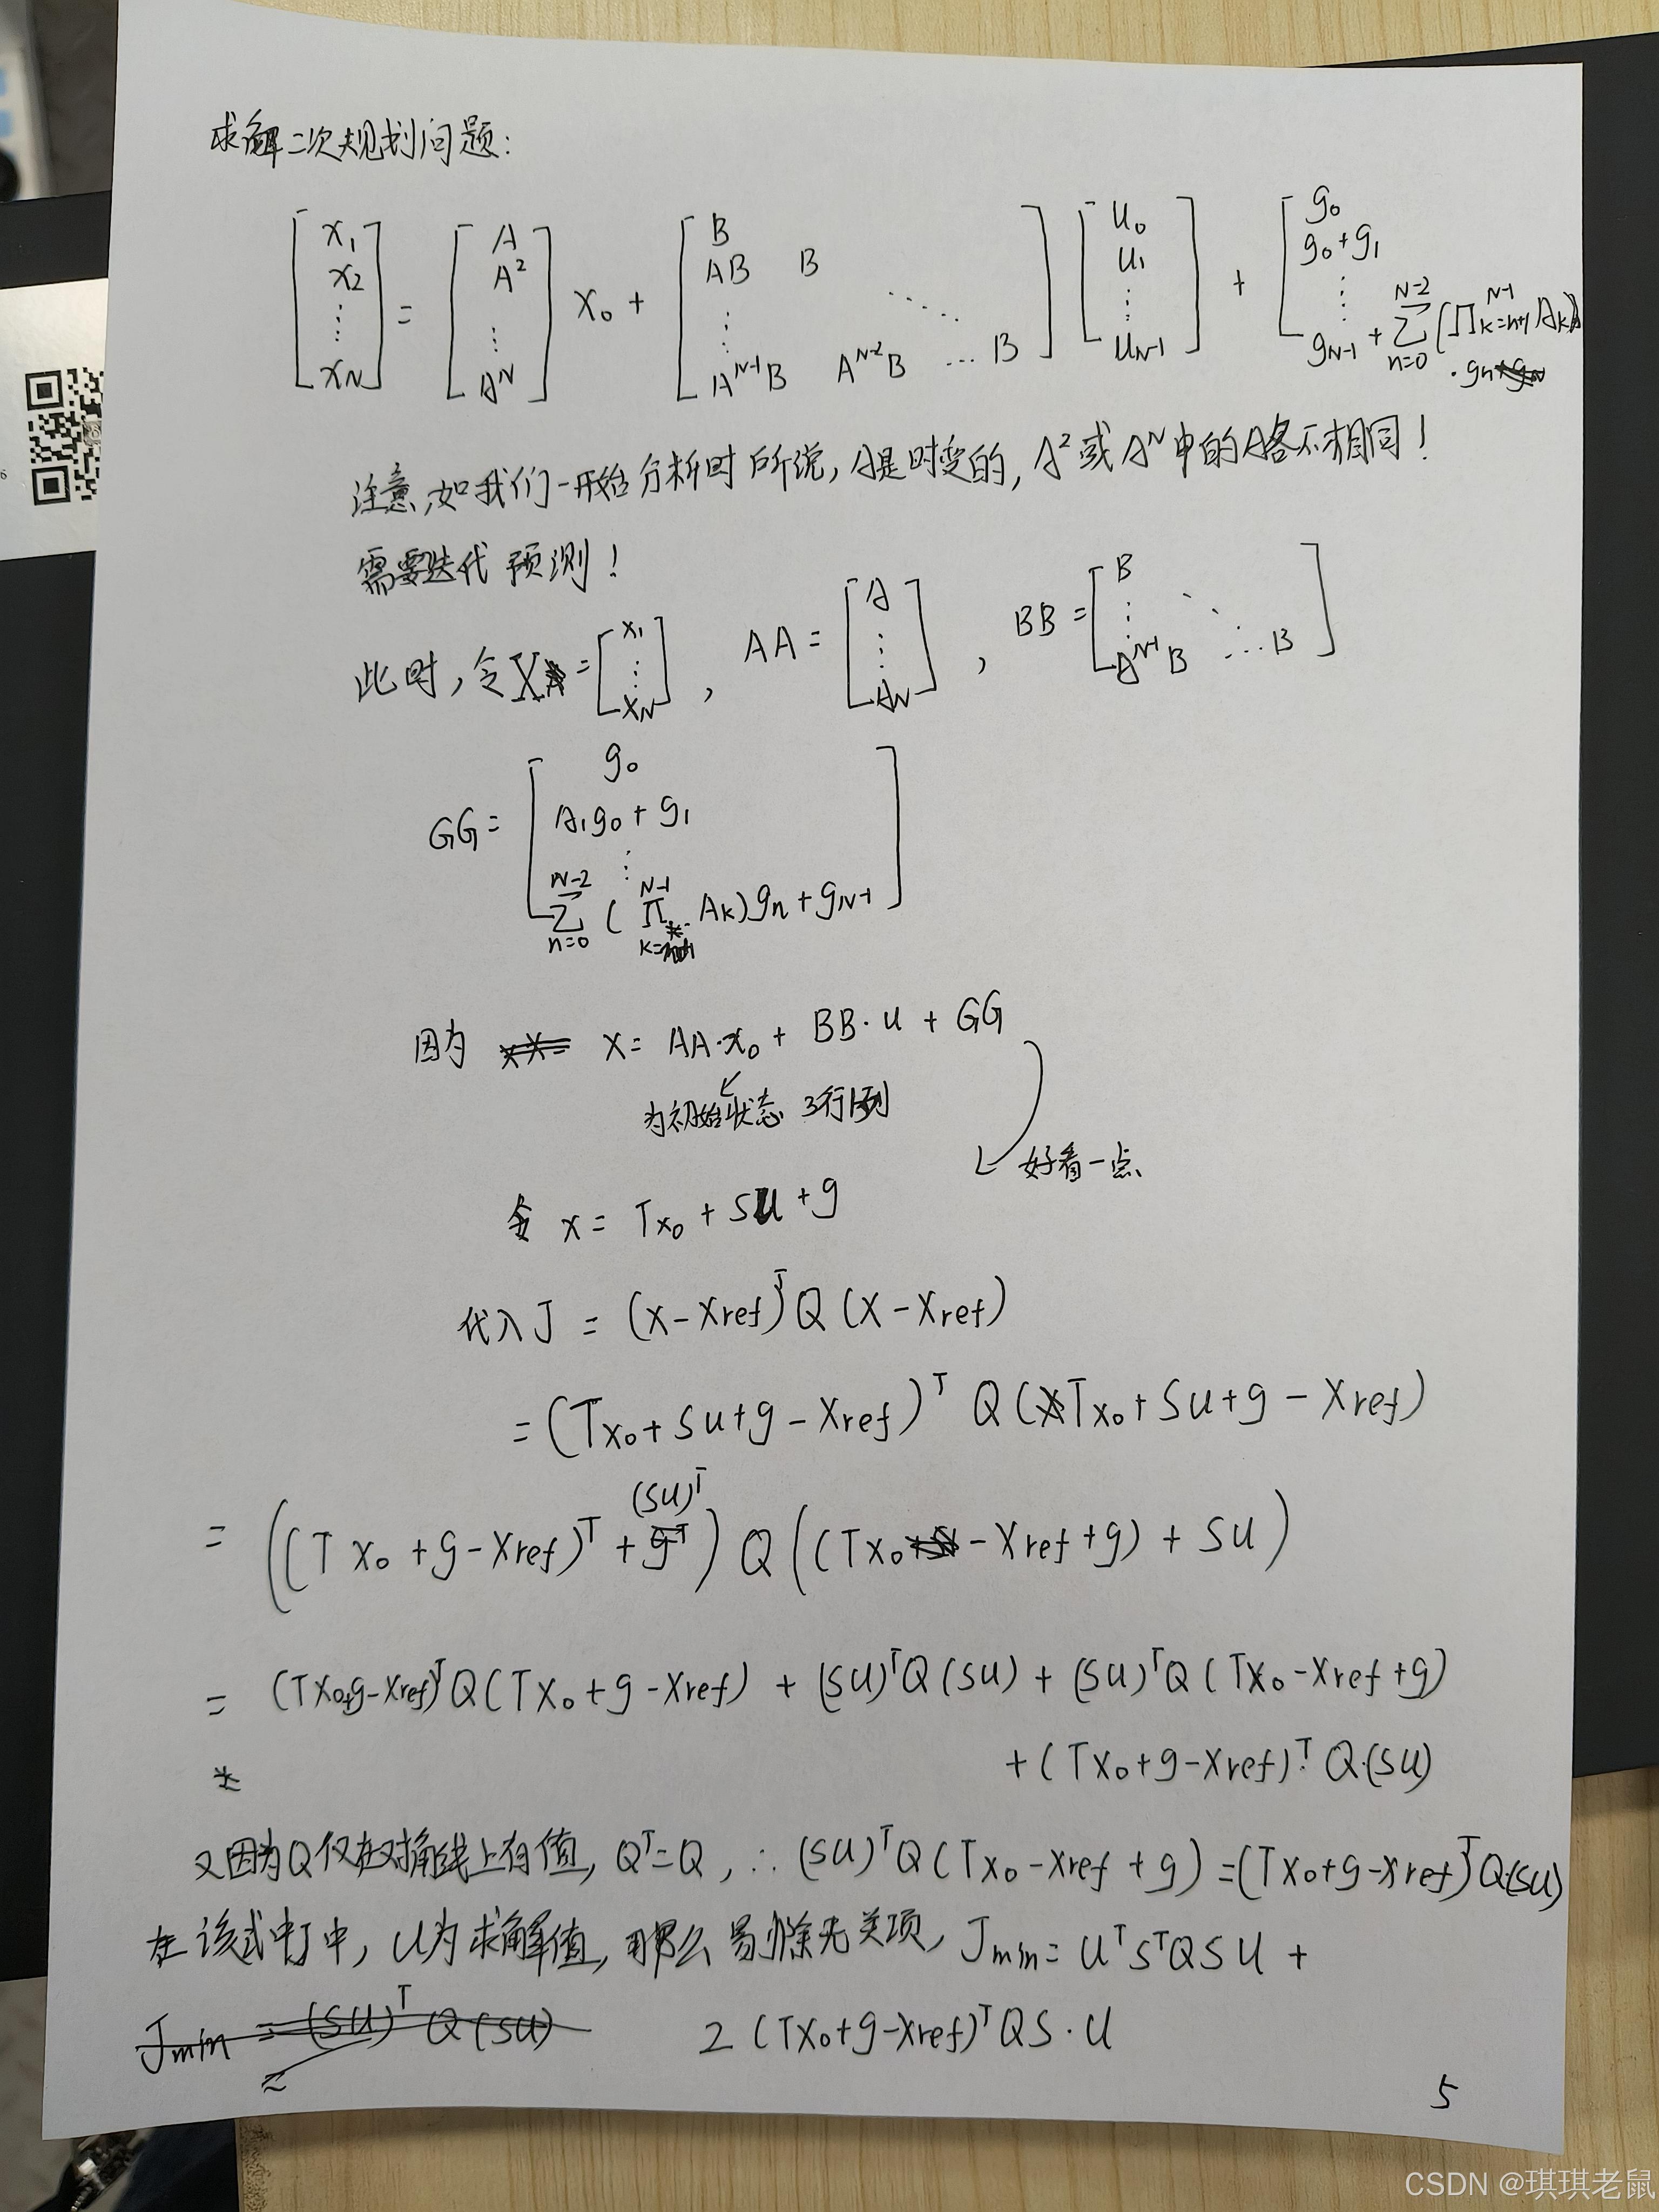 求解二次规划问题:
[x₁ x₂ ⋮ x_N] = [A A² ⋮ A^N] x₀ + [B; AB B; ⋮ ⋱; A^{N-1}B A^{N-2}B … B] [u₀ u₁ ⋮ u_{N-1}] + [g₀; g₀+g₁; ⋮; g_{N-1} + ∑_{n=0}^{N-2} (∏_{k=n+1}^{N-1} A_k) · g_n]
注意,如我们一开始分析时所说,A是时变的,A²或A^N中的A各不相同!
需要迭代预测!
此时,令X = [x₁ ⋮ x_N], AA = [A ⋮ A^N], BB = [B; ⋮ ⋱; A^{N-1}B … B]
GG = [g₀; A₁g₀+g₁; ⋮; ∑_{n=0}^{N-2} (∏_{k=n+1}^{N-1} A_k) g_n + g_{N-1}]
因为 X = AA·x₀ + BB·u + GG
为初始状态 3行1列
好看一点
令 x = Tx₀ + SU + g
代入 J = (X-Xref)ᵀQ(X-Xref)
= (Tx₀+Su+g-Xref)ᵀ Q (Tx₀+Su+g-Xref)
= ((Tx₀+g-Xref)ᵀ + (SU)ᵀ) Q ((Tx₀-Xref+g) + SU)
= (Tx₀+g-Xref)ᵀQ(Tx₀+g-Xref) + (SU)ᵀQ(SU) + (SU)ᵀQ(Tx₀-Xref+g)
+ (Tx₀+g-Xref)ᵀ·Q·(SU)
又因为Q仅在对角线上有值, Qᵀ=Q, ∴ (SU)ᵀQ(Tx₀-Xref+g) = (Tx₀+g-Xref)ᵀQ(SU)
在该式中J中, U为求解值, 那么易除无关项, Jmin = UᵀSᵀQSU +
2(Tx₀+g-Xref)ᵀQS·U
5
CSDN @琪琪老鼠